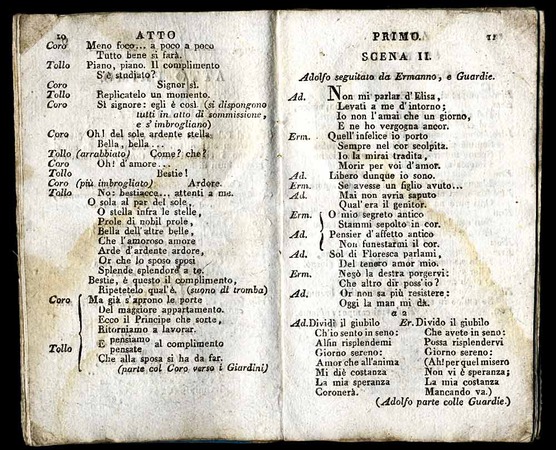 10 ATTO
Coro Meno foco... a poco a poco
Tutto bene si farà.
Tollo Piano, piano. Il complimento
S'è studiato?
Coro Signor sì.
Tollo Replicatelo un momento.
Coro Sì signore: egli è così. (si dispongono
tutti in atto di sommissione,
e s'imbrogliano)
Coro Oh! del sole ardente stella
Bella, bella...
Tollo (arrabbiato) Come? che?
Coro Oh! d'amore...
Tollo Bestie!
Coro (più imbrogliato) Ardore.
Tollo No: bestiacce... attenti a me.
O sola al par del sole,
O stella infra le stelle,
Prole di nobil prole,
Bella dell'altre belle,
Che l'amoroso amore
Arde d'ardente ardore,
Or che lo sposo sposi
Splende splendore a te.
Bestie, è questo il complimento,
Ripetetelo qual'è. (suono di tromba)
Coro Ma già s'aprono le porte
Del maggiore appartamento.
Ecco il Principe che sorte,
Ritorniamo a lavorar.
Tollo E pensiamo
pensate al complimento
Che alla sposa si ha da far.
(parte col Coro verso i Giardini)
PRIMO. 11
SCENA II.
Adolfo seguitato da Ermanno, e Guardie.
Ad. Non mi parlar d'Elisa,
Levati a me d'intorno;
Io non l'amai che un giorno,
E ne ho vergogna ancor.
Erm. Quell'infelice io porto
Sempre nel cor scolpita.
Io la mirai tradita,
Morir per voi d'amor.
Ad. Libero dunque io sono.
Erm. Se avesse un figlio avuto...
Ad. Mai non avria saputo
Qual'era il genitor.
Erm. O mio segreto antico
Stammi sepolto in cor.
Ad. Pensier d'affetto antico
Non funestarmi il cor.
Ad. Sol di Floresca parlami,
Del tenero amor mio.
Erm. Negò la destra porgervi:
Che altro dir poss'io?
Ad. Or non sa più resistere:
Oggi la man mi dà.
a 2
Ad. Divide il giubilo Er. Divido il giubilo
Ch'io sento in seno: Che avete in seno:
Alfin risplendemi Possa risplendervi
Giorno sereno: Giorno sereno:
Amor che all'anima (Ah! per quel misero
Mi diè costanza Non vi è speranza;
La mia speranza La mia costanza
Coronerà. Mancando va.)
(Adolfo parte colle Guardie.)